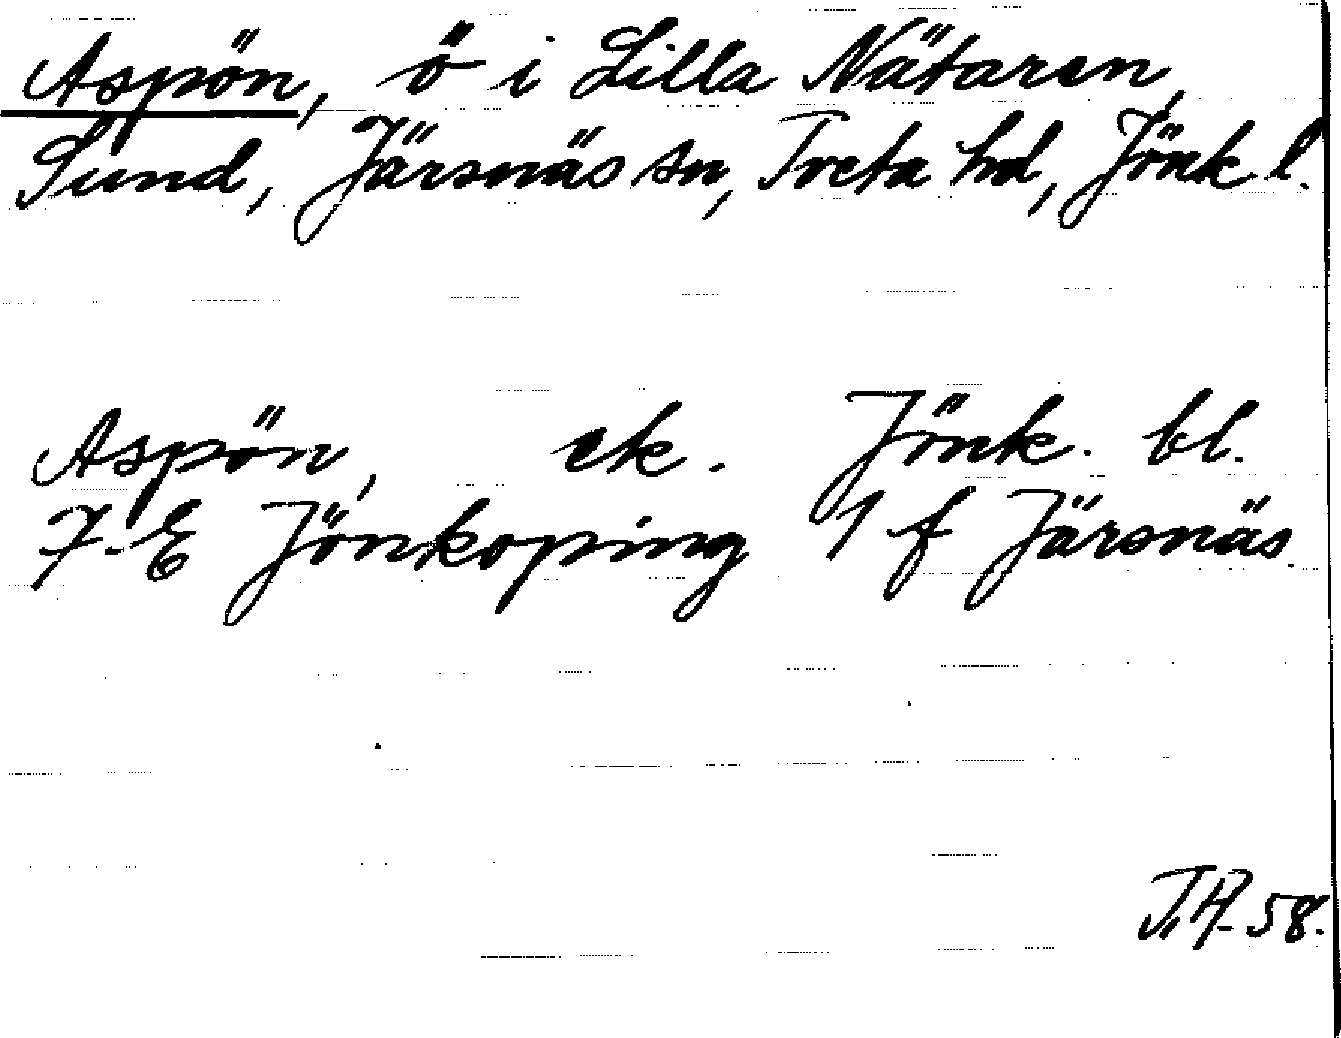 Aspön, ö i Lilla Nätaren,
Sund, Järsnäs sn, Tveta hd, Jönk. l.
Aspön, ek. Jönk. bl.
7 E Jönköping 1 f Järsnäs.
T.H. 58.